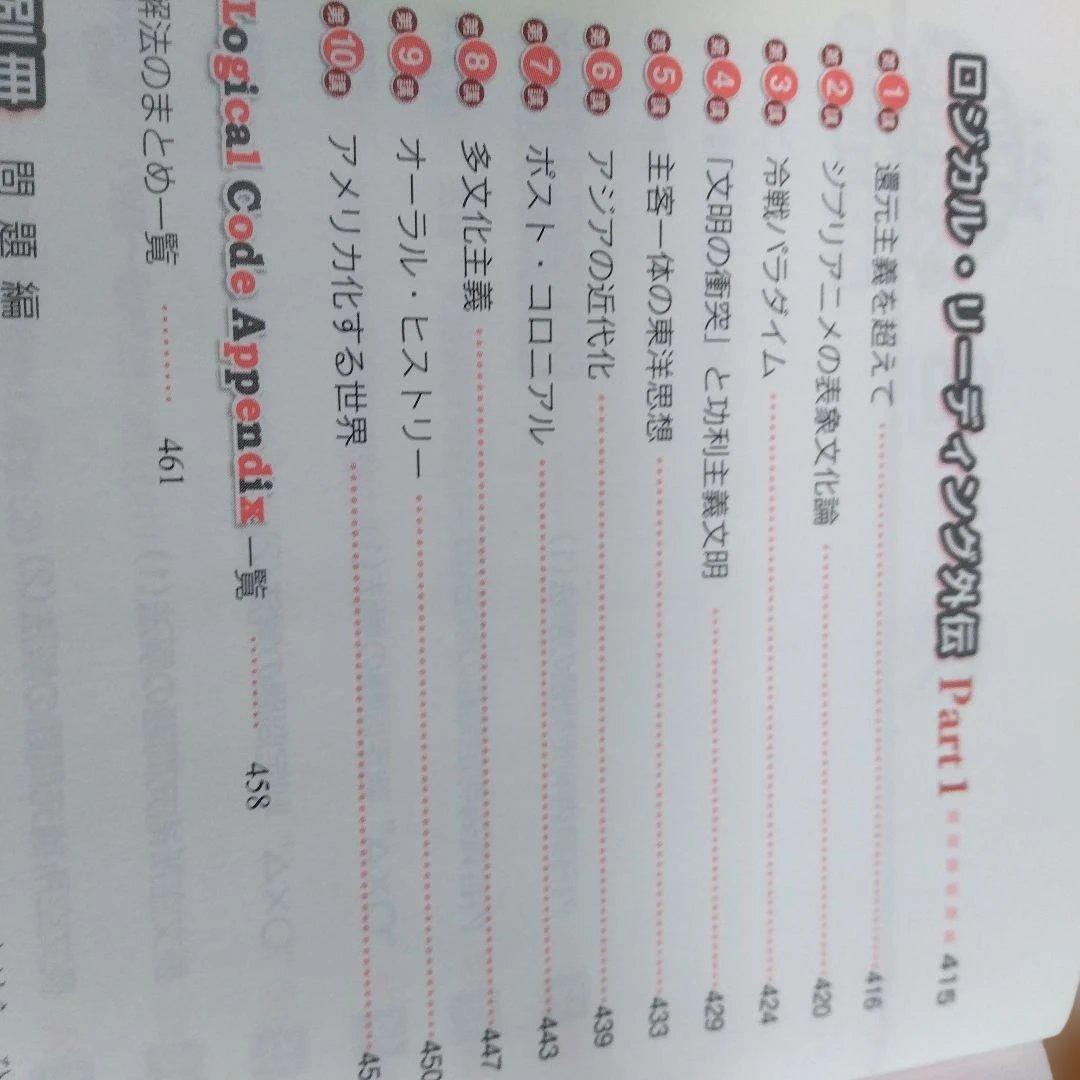 ロジカル・リーディング外伝 Part 1 ……… 415
第1講 還元主義を超えて ……… 416
第2講 ジブリアニメの表象文化論 ……… 420
第3講 冷戦パラダイム ……… 424
第4講 「文明の衝突」と功利主義文明 ……… 429
第5講 主客一体の東洋思想 ……… 433
第6講 アジアの近代化 ……… 439
第7講 ポスト・コロニアル ……… 443
第8講 多文化主義 ……… 447
第9講 オーラル・ヒストリー ……… 450
第10講 アメリカ化する世界 ……… 45
Logical Code Appendix 一覧 ……… 458
解法のまとめ一覧 ……… 461
別冊 問題編